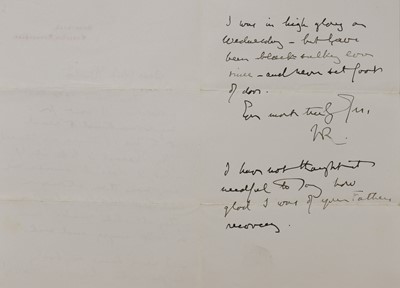 I was in high glory on
Wednesday - but have
been black sulky ever
since - and never set foot
of door.
Ever most truly Yrs,
I have not thought it
needful to say how
glad I was of your Fathers
recovery.